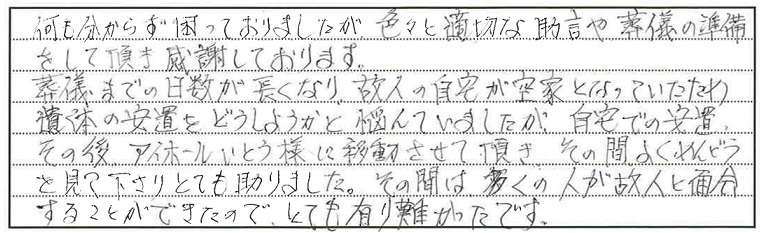 何も分からず困っておりましたが 色々と適切な助言や葬儀の準備
をして頂き感謝しております。
葬儀までの日数が長くなり、故人の自宅が空家となっていたため
遺体の安置をどうしようかと悩んでいましたが、自宅での安置、
その後 アイホールいとう様に移動させて頂き、その間よくめんどう
を見て下さりとても助りました。その間は多くの人が故人と面会
することができたので、とても有り難かったです。